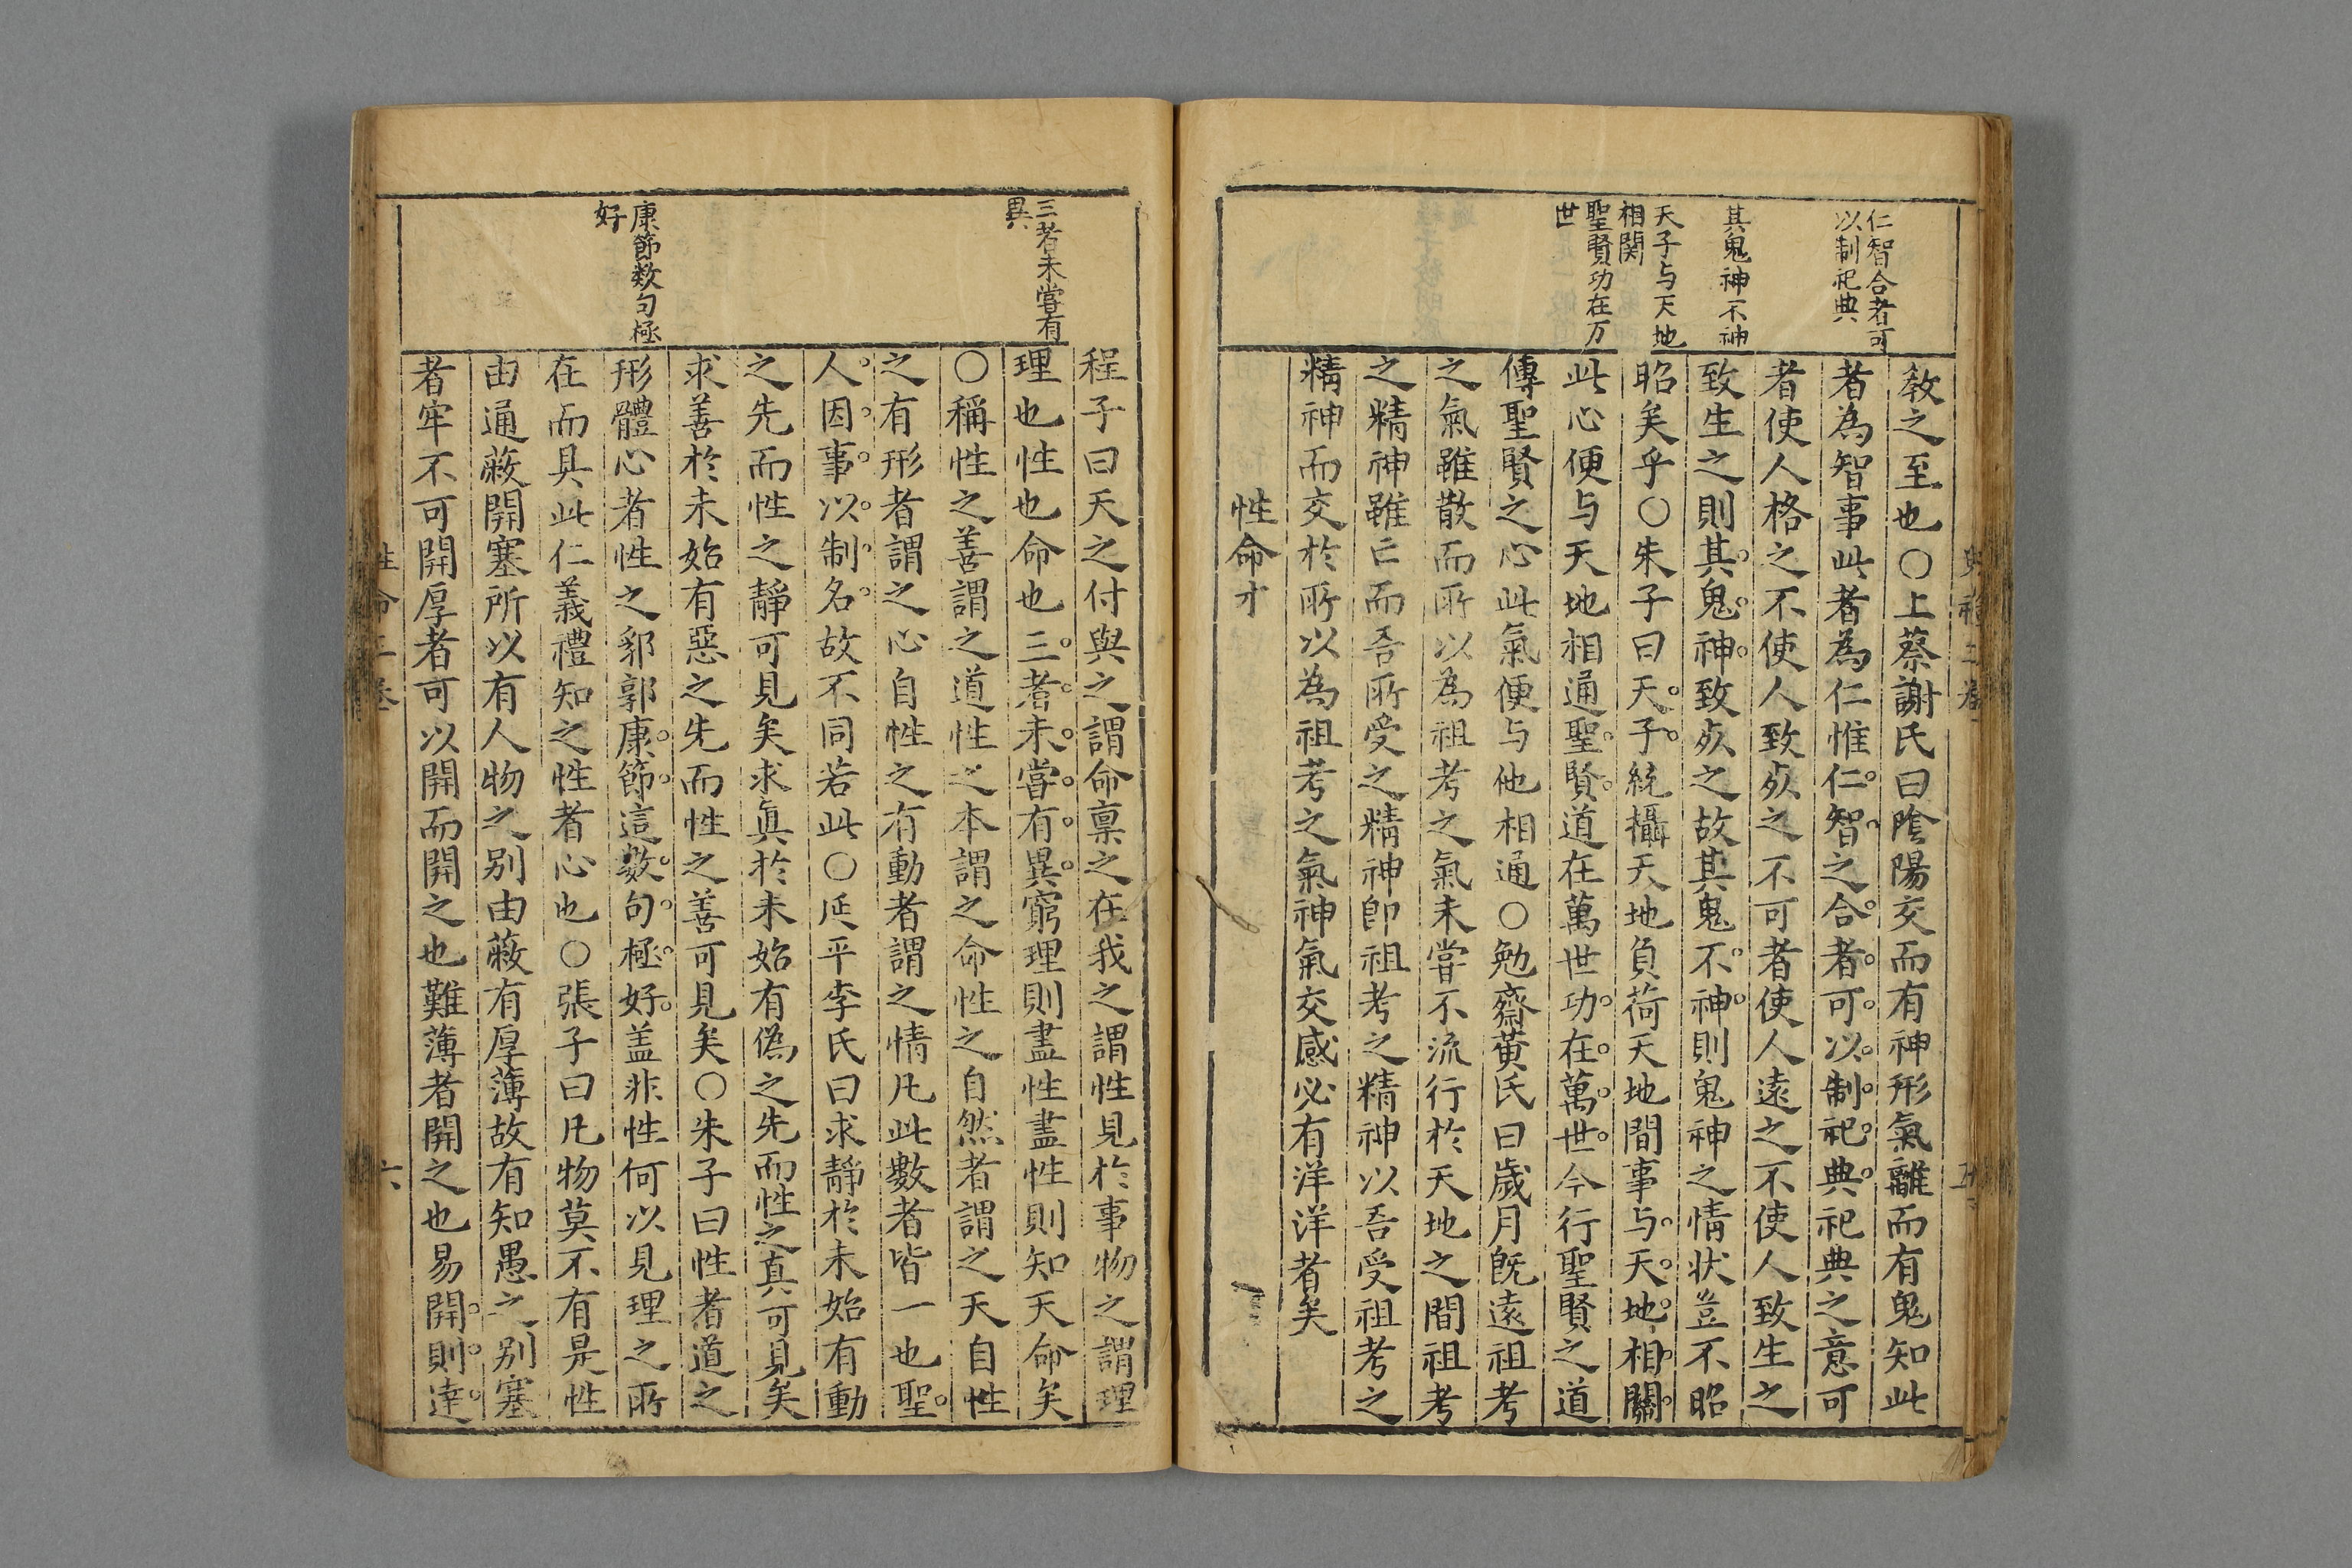 仁智合者可
以制祀典
其鬼神不神
天子与天地
相関
聖賢功在万
世
教之至也○上蔡謝氏曰陰陽交而有神形氣離而有鬼知此
者為智事此者為仁惟仁智之合者可以制祀典祀典之意可
者使人格之不使人致歿之不可者使人遠之不使人致生之
致生之則其鬼神致歿之故其鬼不神則鬼神之情状豈不昭
昭矣乎○朱子曰天子統攝天地負荷天地間事与天地相關
此心便与天地相通聖賢道在萬世功在萬世今行聖賢之道
傳聖賢之心此氣便与他相通○勉齋黄氏曰歲月既遠祖考
之氣雖散而所以為祖考之氣未嘗不流行於天地之間祖考
之精神雖亡而吾所受之精神即祖考之精神以吾受祖考之
精神而交於所以為祖考之氣神氣交感必有洋洋者矣
性命才
三者未嘗有
異
康節数句極
好
程子曰天之付與之謂命稟之在我之謂性見於事物之謂理
理也性也命也三者未嘗有異窮理則盡性盡性則知天命矣
○稱性之善謂之道性之本謂之命性之自然者謂之天自性
之有形者謂之心自性之有動者謂之情凡此數者皆一也聖
人因事以制名故不同若此○延平李氏曰求靜於未始有動
之先而性之靜可見矣求眞於未始有偽之先而性之真可見矣
求善於未始有惡之先而性之善可見矣○朱子曰性者道之
形體心者性之郛郭康節這数句極好盖非性何以見理之所
在而具此仁義禮知之性者心也○張子曰凡物莫不有是性
由通蔽開塞所以有人物之别由蔽有厚薄故有知愚之别塞
者牢不可開厚者可以開而開之也難薄者開之也易開則達
性命二卷
六